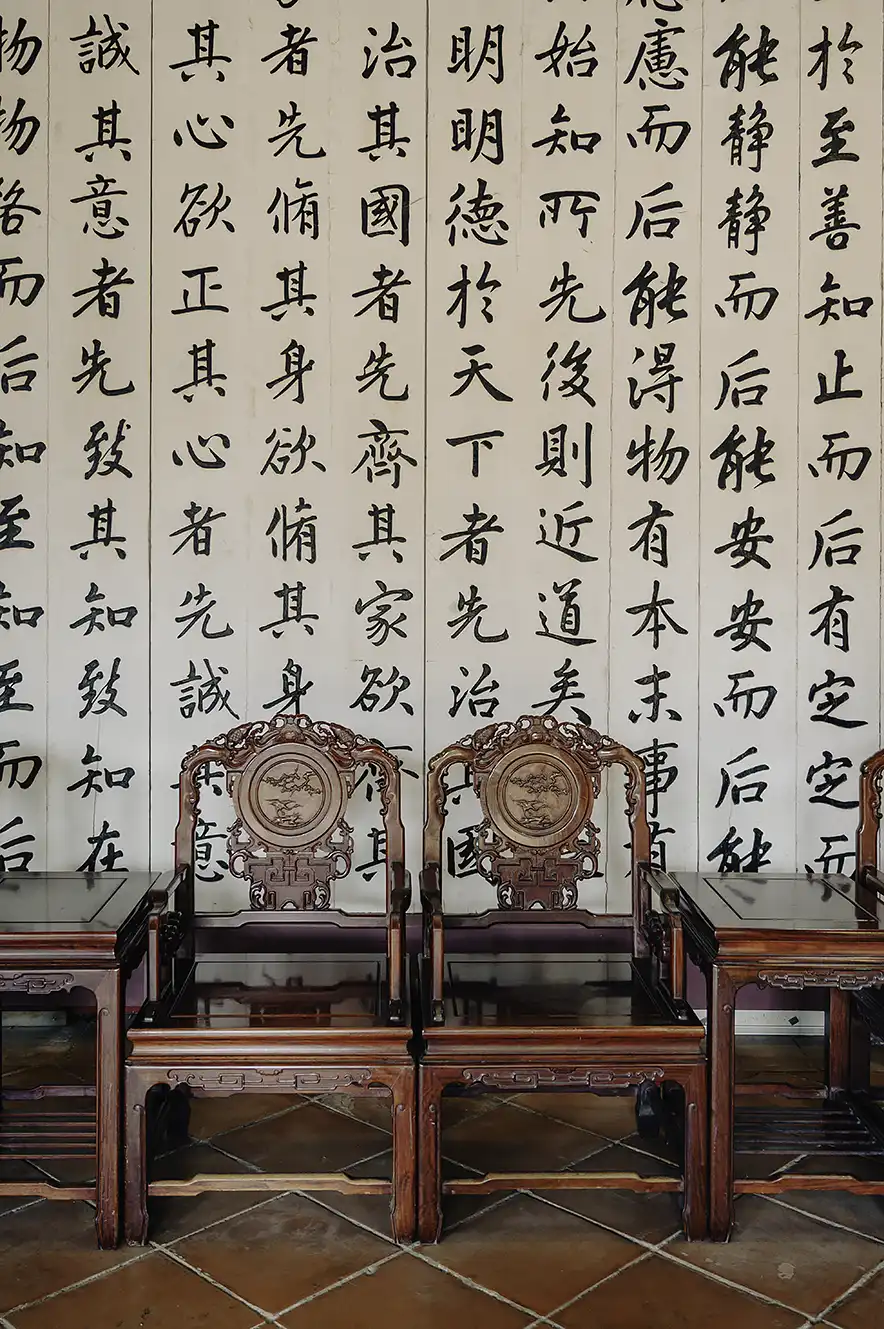 於至善知止而后有定定而
能静静而后能安安而后能
慮而后能得物有本末事有
始知所先後則近道矣
明明德於天下者先治其國
治其國者先齊其家欲齊其
者先脩其身欲脩其身
其心欲正其心者先誠其意
誠其意者先致其知致知在
物物格而后知至知至而后